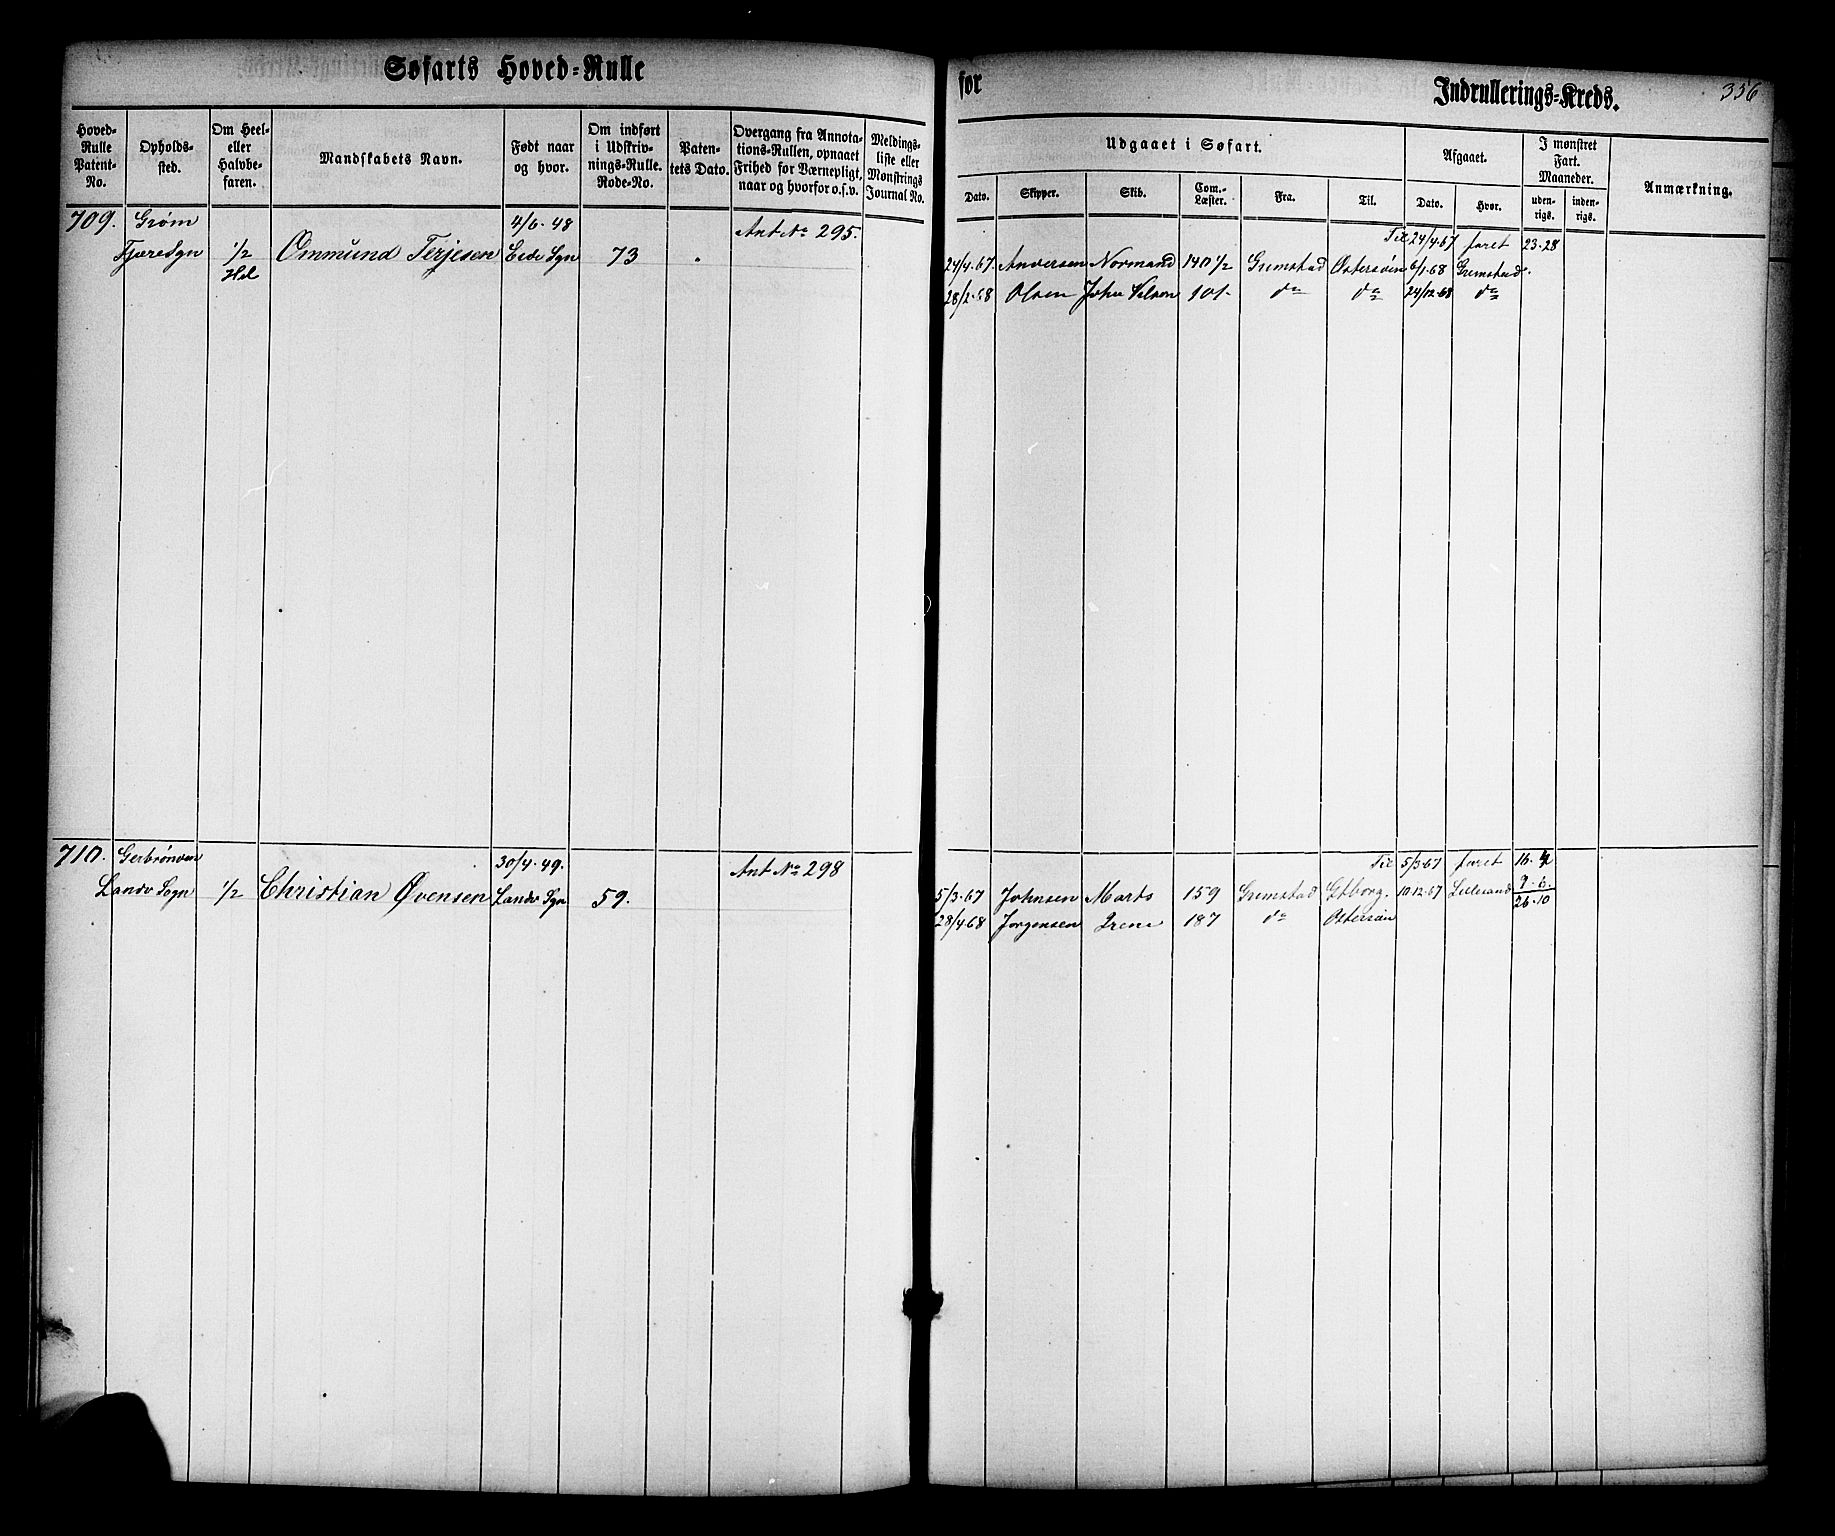 Søfarts Hoved-Rulle
for
Indrullerings-Kreds.
356
Hoved-Rulle Patent-No.
Opholds-sted.
Om Heel- eller Halvbe-faren.
Mandskabets Navn.
Født naar og hvor.
Om indført i Udskriv-nings-Rulle. Rode-No.
Paten-tets Dato.
Overgang fra Annota-tions-Rullen, opnaaet Frihed for Værnepligt, naar og hvorfor o.s.v.
Meldings-liste eller Mønstrings Journal No.
Udgaaet i Søfart.
Afgaaet.
I mønstret Fart. Maaneder.
Anmærkning.
Dato.
Skipper.
Skib.
Com.-Læster.
Fra.
Til.
Dato.
Hvor.
uden-rigs.
inden-rigs.
709.
Grøm
Fjæresgn
1/2
Hel
Ommund Terjesen
4/6.48
Eide Sgn
73
Ant No 295.
Til 24/4.67 faret 23.28
24/4.67 Andersen Normand 140 1/2 Grimstad Østersøen 6/1.68 Grimstad.
28/2.68 Olsen John 101. do do 24/12.68 do
710.
Landv Sogn
1/2
Christian Øvensen
30/4.49.
Landv Sgn
59.
Ant No 298
Til 5/3.67 faret 16.4
5/3.67 Johnsen Marts 159 Grimstad Gtborg. 10.12.67 Lillesand 9.6.
28/4.68 Jørgensen Irene 187 do Østersøn 26.10